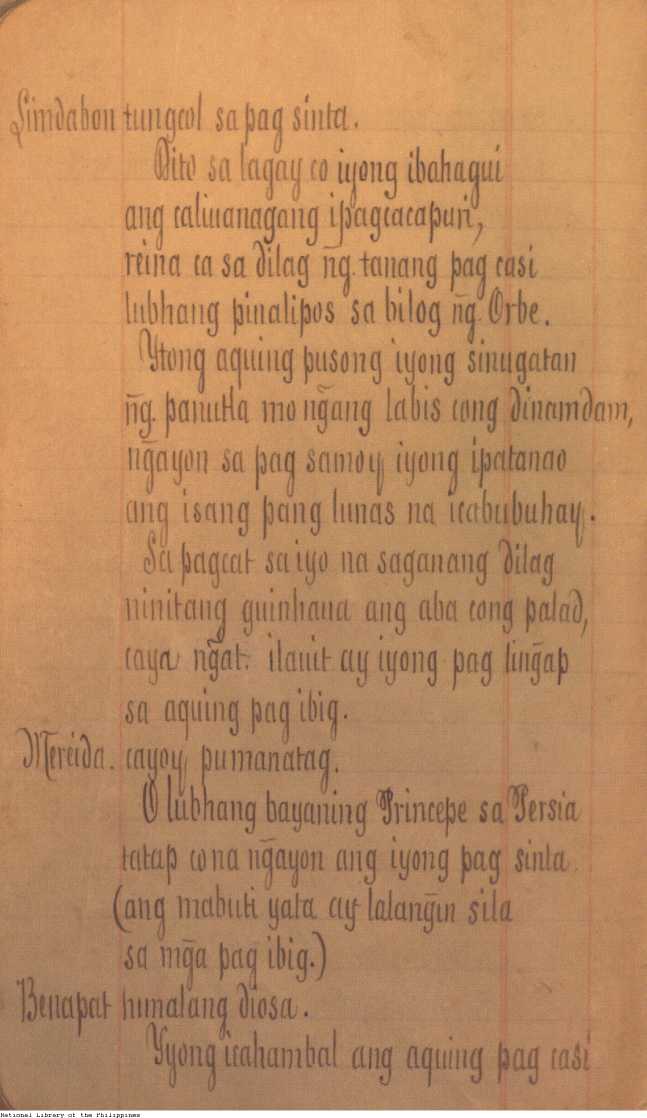 Lindabon tungcol sa pag sinta.
Dito sa lagay co iyong ibahagui
ang caliuanagang ipagcacapuri,
reina ca sa dilag ñg. tanang pag casi
lubhang pinalipos sa bilog ñg. Orbe.
Ytong aquing pusong iyong sinugatan
ñg. panutla mo ng̃ang labis cong dinamdam,
ng̃ayon sa pag samoy iyong ipatanao
ang isang pang lunas na icabubuhay.
Sa pagcat sa iyo na saganang dilag
ninitang guinhaua ang aba cong palad,
caya ng̃at. ilauit ay iyong pag ling̃ap
sa aquing pag ibig.
Mereida. cayoy pumanatag.
O lubhang bayaning Princepe sa Persia
tatap co na ng̃ayon ang iyong pag sinta.
(ang mabuti yata ay lalang̃in sila
sa mg̃a pag ibig.)
Benapat himalang diosa.
Yyong icahambal ang aquing pag casi
National Library of the Philippines